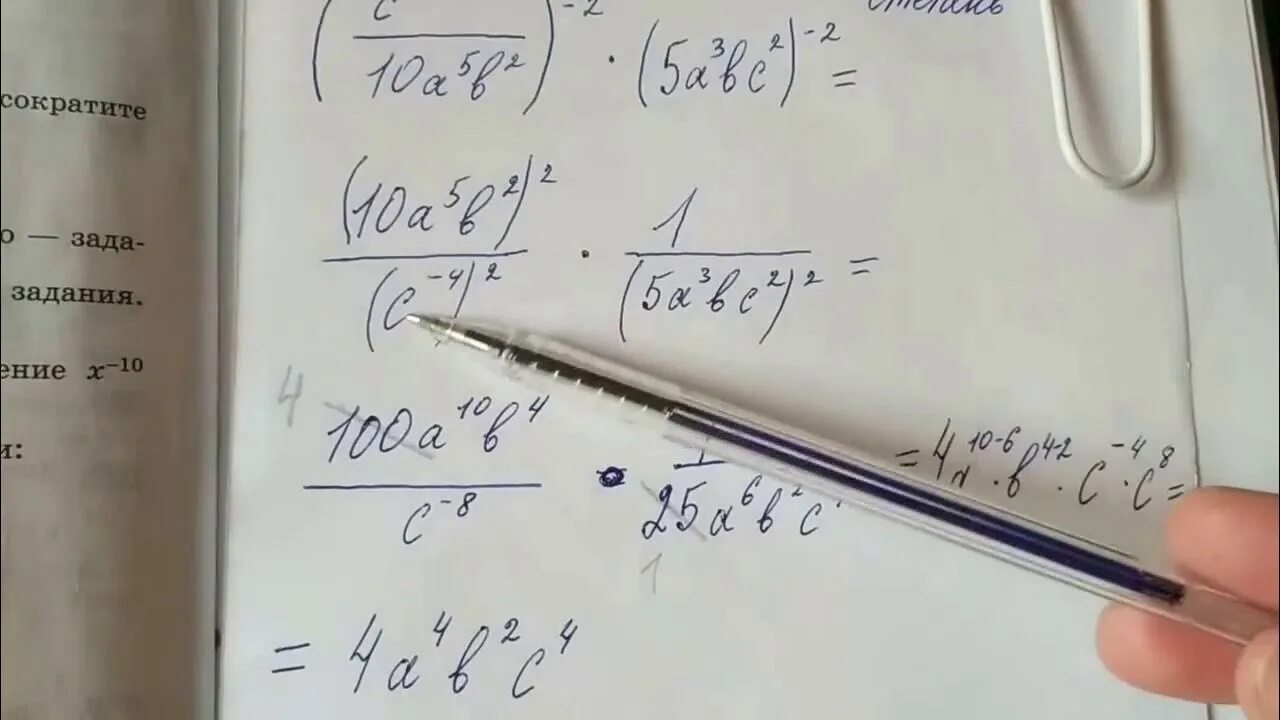 сократите
о — зада-
задания.
ение x⁻¹⁰
и:
степень
(c / 10a⁵b²)⁻² · (5a³bc²)⁻² =
(10a⁵b²)² / (c⁻⁴)² · 1 / (5a³bc²)² =
4
100a¹⁰b⁴ / c⁻⁸ · 1 / 25a⁶b²c
1
= 4a¹⁰⁻⁶ · b⁴⁻² · c⁻⁴ · c⁸ =
= 4a⁴b²c⁴